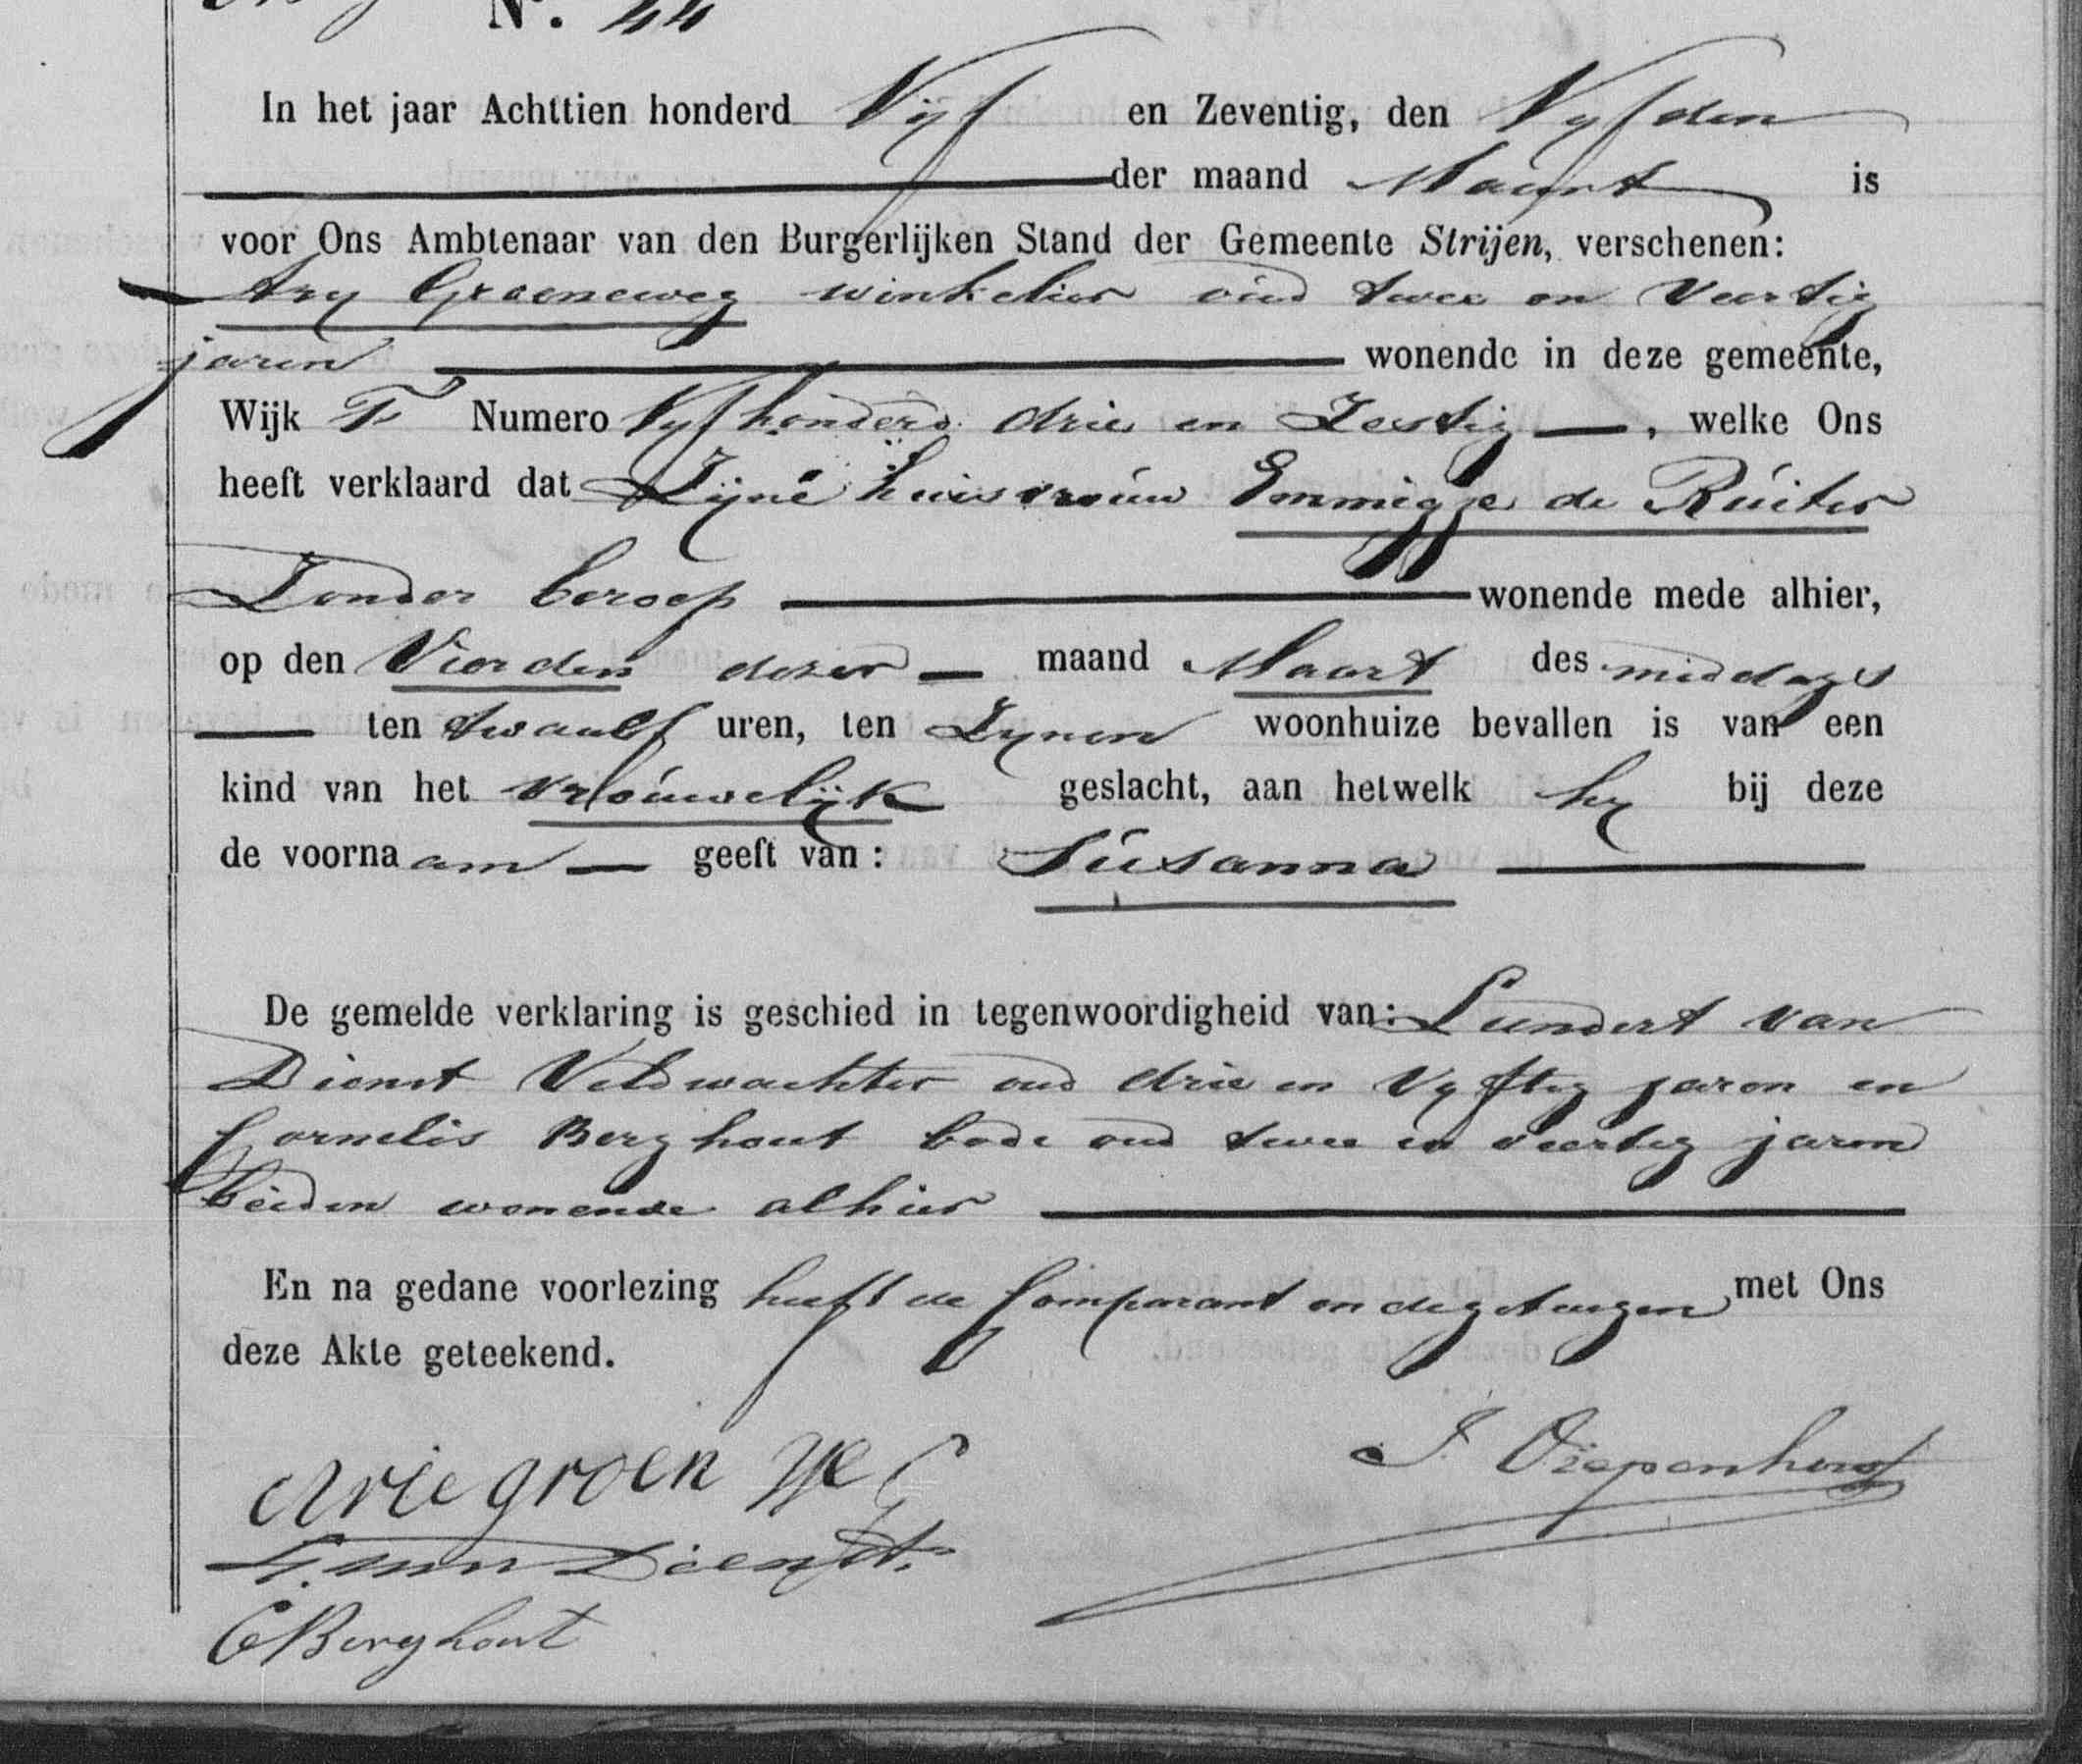 N°. 44
In het jaar Achttien honderd Vijf en Zeventig, den Vyfden
der maand Maart is
voor Ons Ambtenaar van den Burgerlijken Stand der Gemeente Strijen, verschenen:
Ary Groeneweg winkelier oud twee en Veertig
jaren wonende in deze gemeente,
Wijk F Numero Vyfhonderd drie en Zestig —, welke Ons
heeft verklaard dat Zijne huisvrouw Emmigje de Ruiter
Zonder beroep wonende mede alhier,
op den Vierden dezer — maand Maart des middags
— ten twaalf uren, ten Zynen woonhuize bevallen is van een
kind van het vrouwelijk geslacht, aan hetwelk hy bij deze
de voornaam — geeft van: Susanna
De gemelde verklaring is geschied in tegenwoordigheid van: Leendert van
Dienst Veldwachter oud drie en Vyftig jaren en
Cornelis Berghout bode oud twee en veertig jaren
beiden wonende alhier
En na gedane voorlezing heeft de Comparant en de getuigen met Ons
deze Akte geteekend.
Arie groen We G
J. Diepenhorst
L. van Dienst.
C Berghout